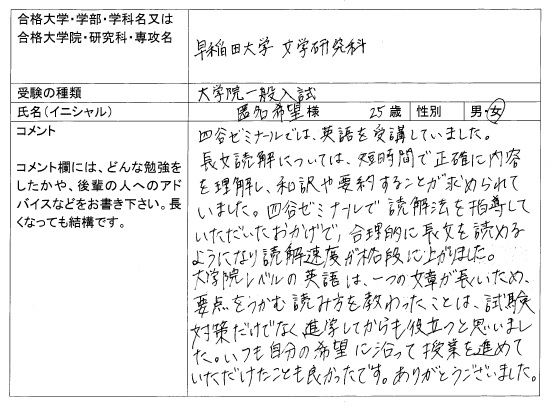 合格大学・学部・学科名又は
合格大学院・研究科・専攻名
早稲田大学 文学研究科
受験の種類
大学院一般入試
氏名(イニシャル)
匿名希望様 25歳 性別 男・女
コメント
コメント欄には、どんな勉強を
したかや、後輩の人へのアド
バイスなどをお書き下さい。長
くなっても結構です。
四谷ゼミナールでは、英語を受講していました。
長文読解については、短時間で正確に内容
を理解し、和訳や要約することが求められて
いました。四谷ゼミナールで読解法を指導して
いただいたおかげで、合理的に長文を読める
ようになり読解速度が格段に上がりました。
大学院レベルの英語は、一つの文章が長いため、
要点をつかむ読み方を教わったことは、試験
対策だけでなく進学してからも役立つと思いまし
た。いつも自分の希望に沿って授業を進めて
いただけたことも良かったです。ありがとうございました。